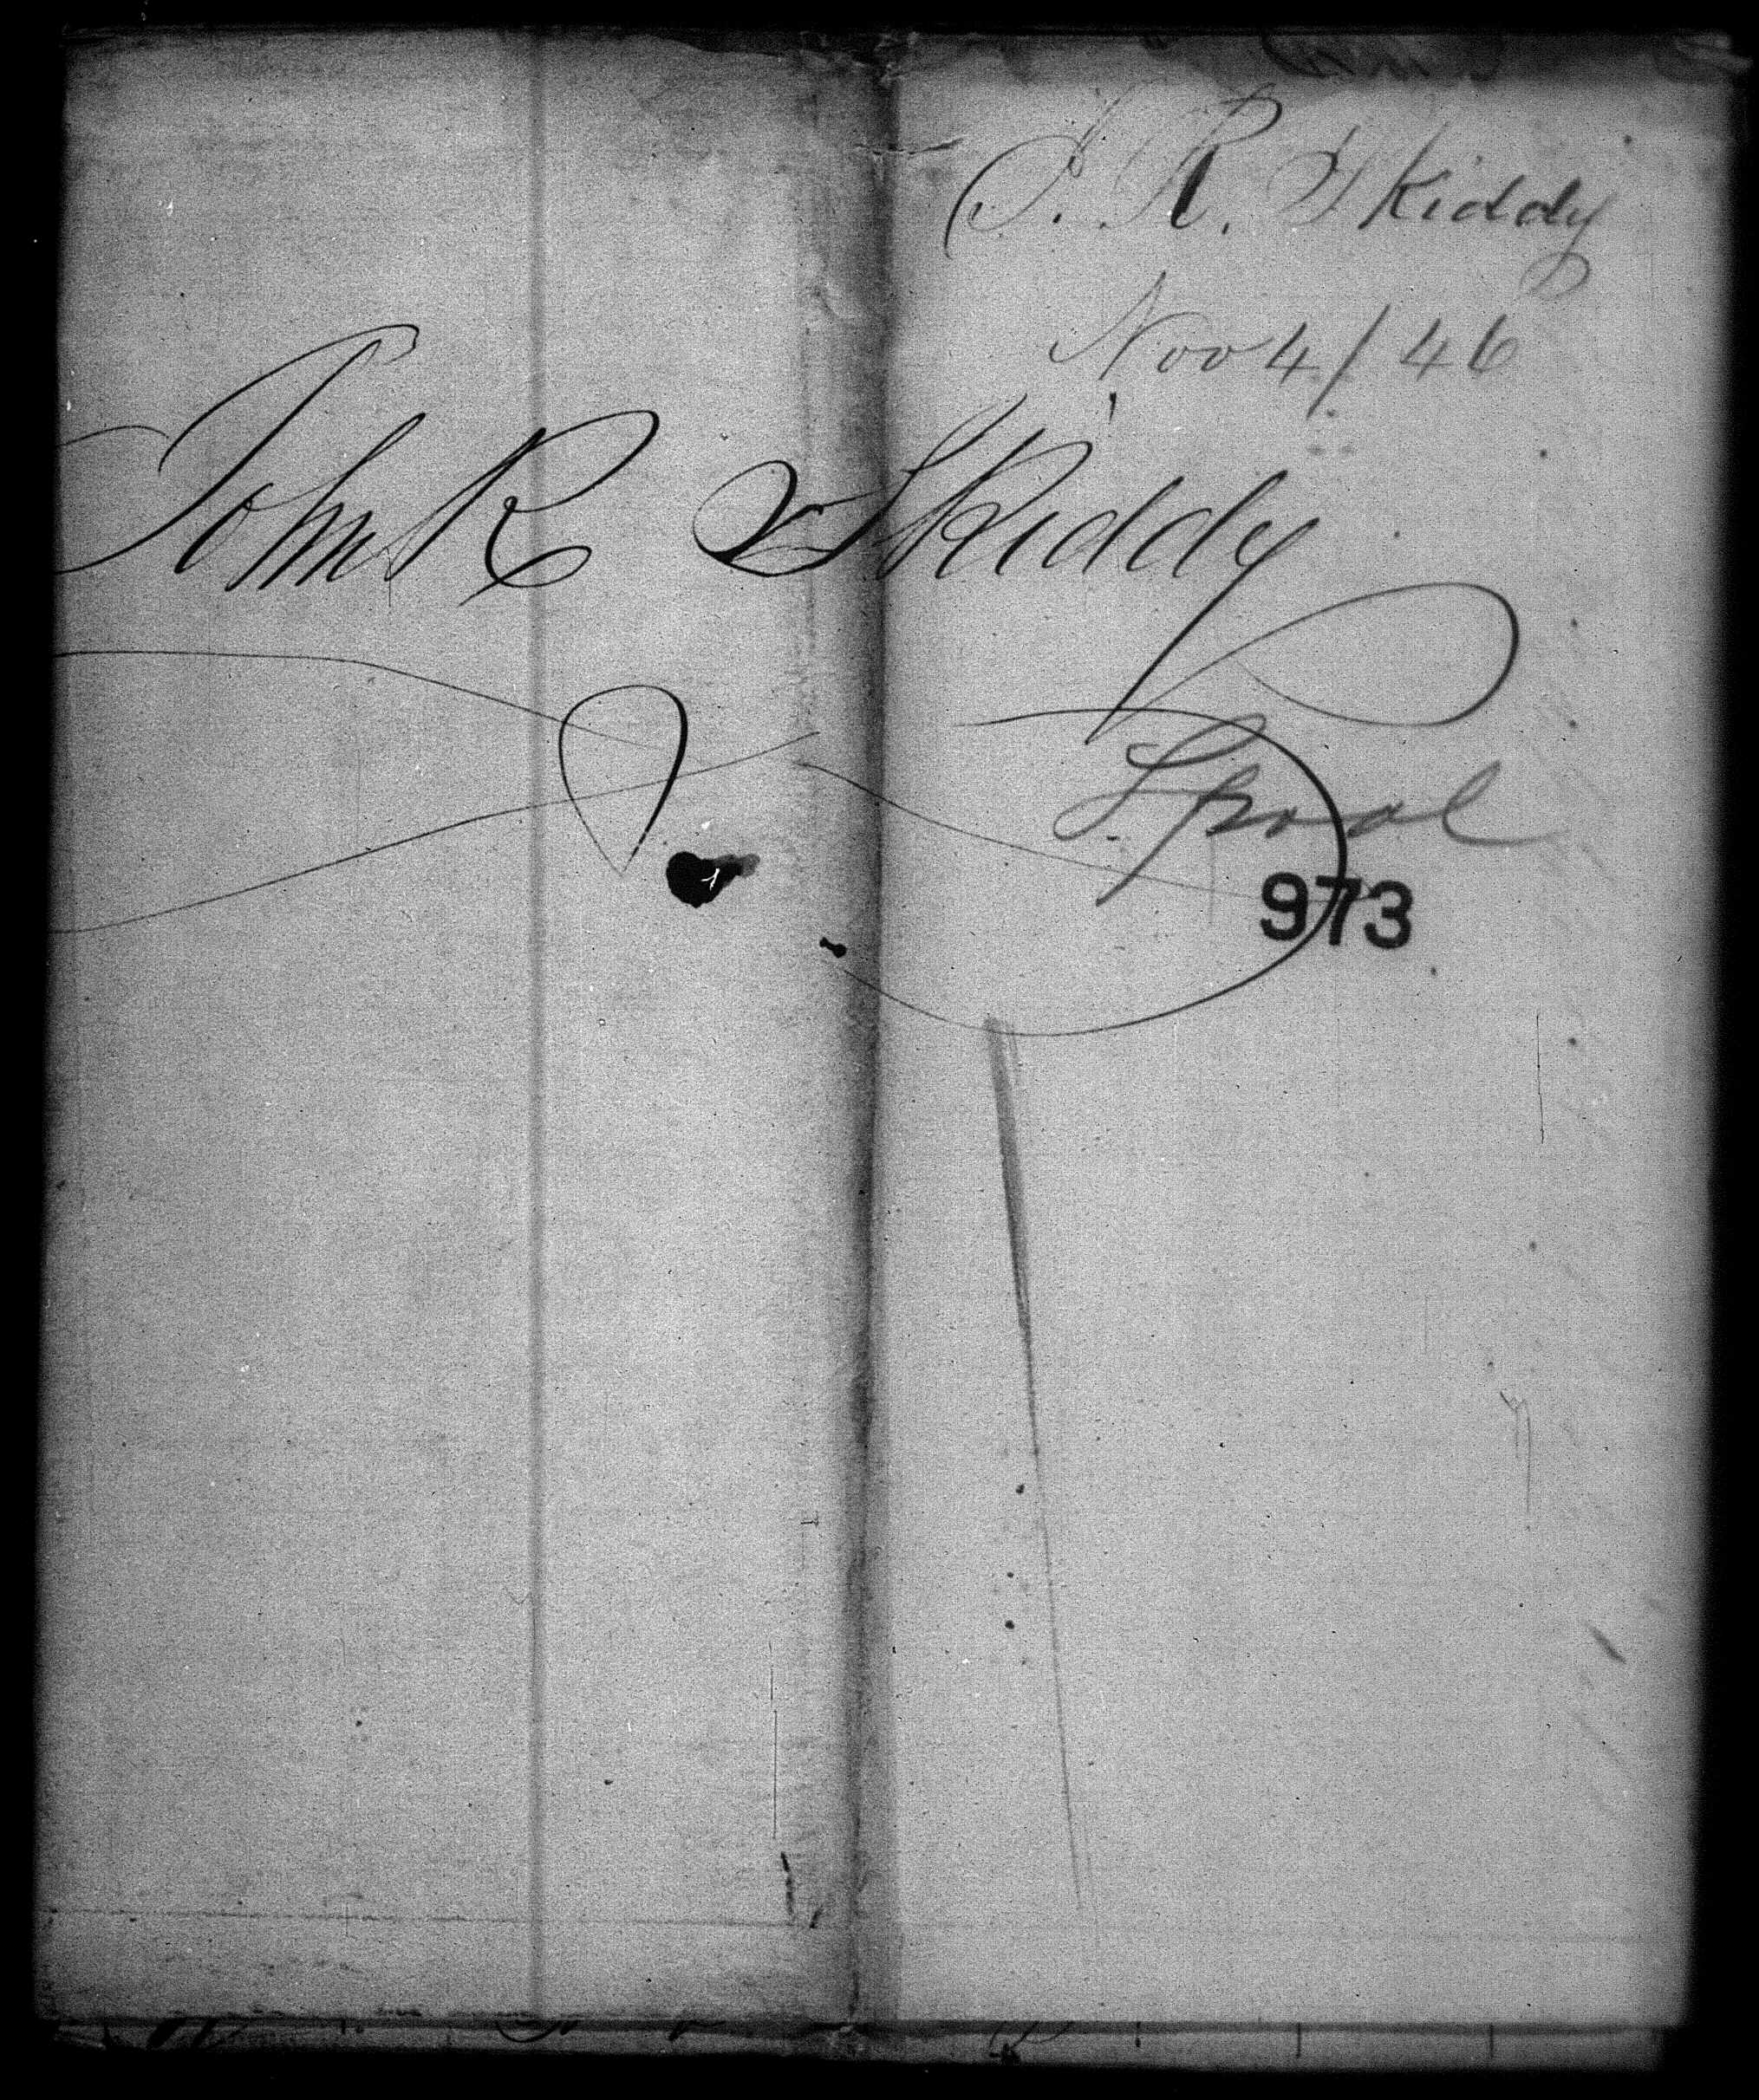 J. R. Skiddy
Nov 4/46
John R Skiddy
Lpool
973